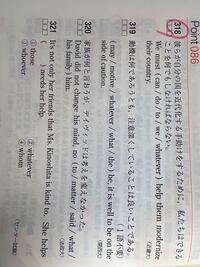 Point 086
318 彼らが自分の国を近代化する手助けをするために，私たちはできる
ことを何でもしなければならない。
We must ( can / do / to / we / whatever ) help them modernize
their country.
319 動機は何であろうとも，注意深くしていることは良いことである。
(1語不要)
( may / motive / whatever / what / the ) be, it is well to be on the
side of caution.
320 家族が何と言おうが，デイヴィッドは考えを変えなかった。
David did not change his mind, ( no / to / matter / said / what /
his family ) him.
321 It's not only her friends that Ms. Kinoshita is kind to. She helps
( ) needs her help.
① whoever ② whatever
③ those ④ whom